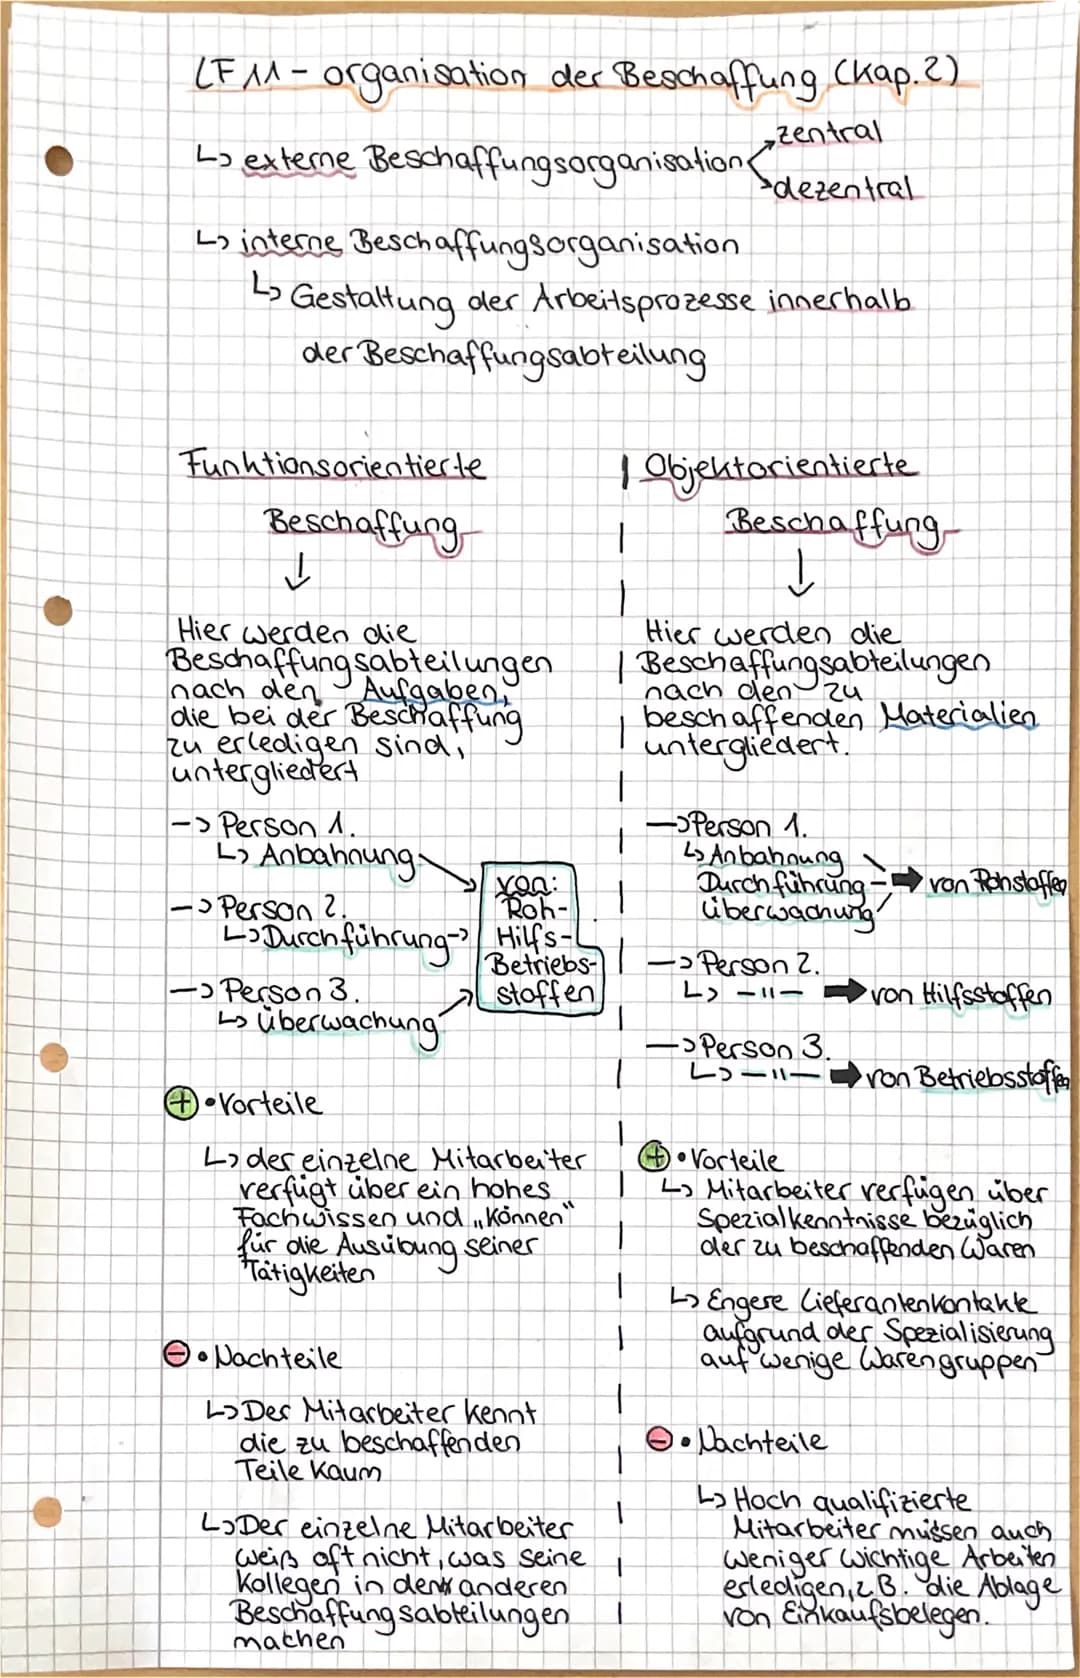 LF 11 - organisation der Beschaffung (Kap. 2)
↳ externe Beschaffungsorganisation
zentral
dezentral
↳ interne Beschaffungsorganisation
↳ Gestaltung der Arbeitsprozesse innerhalb
der Beschaffungsabteilung
Funktionsorientierte
Beschaffung
↓
Hier werden die
Beschaffungsabteilungen
nach den Aufgaben,
die bei der Beschaffung
zu erledigen sind,
untergliedert
-> Person 1.
↳ Anbahnung
-> Person 2.
↳ Durchführung ->
-> Person 3.
↳ Überwachung
von:
Roh-
Hilfs-
Betriebs-
stoffen
+ • Vorteile
↳ der einzelne Mitarbeiter
verfügt über ein hohes
Fachwissen und „Können“
für die Ausübung seiner
Tätigkeiten
- • Nachteile
↳ Der Mitarbeiter kennt
die zu beschaffenden
Teile kaum
↳ Der einzelne Mitarbeiter
weiß oft nicht, was seine
Kollegen in den anderen
Beschaffungsabteilungen
machen
Objektorientierte
Beschaffung
↓
Hier werden die
Beschaffungsabteilungen
nach den zu
beschaffenden Materialien
untergliedert.
-> Person 1.
↳ Anbahnung
Durchführung - ➡ von Rohstoffen
Überwachung
-> Person 2.
↳ -"- ➡ von Hilfsstoffen
-> Person 3.
↳ -"- ➡ von Betriebsstoffen
+ • Vorteile
↳ Mitarbeiter verfügen über
Spezialkenntnisse bezüglich
der zu beschaffenden Waren
↳ Engere Lieferantenkontakte
aufgrund der Spezialisierung
auf wenige Warengruppen
- • Nachteile
↳ Hoch qualifizierte
Mitarbeiter müssen auch
weniger wichtige Arbeiten
erledigen, z.B. die Ablage
von Einkaufsbelegen.